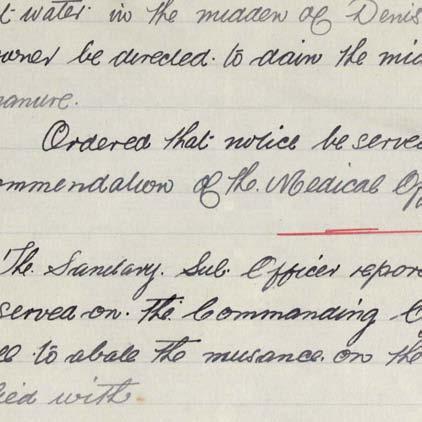 t water in the midden of Denis
owner be directed. to dain the mid
anure.
Ordered that notice be served
ommendation of the. Medical Of
The. Sanitary. Sub. Officer repor
served on. the. Commanding
ee to abate the nusance. on the
lied with.